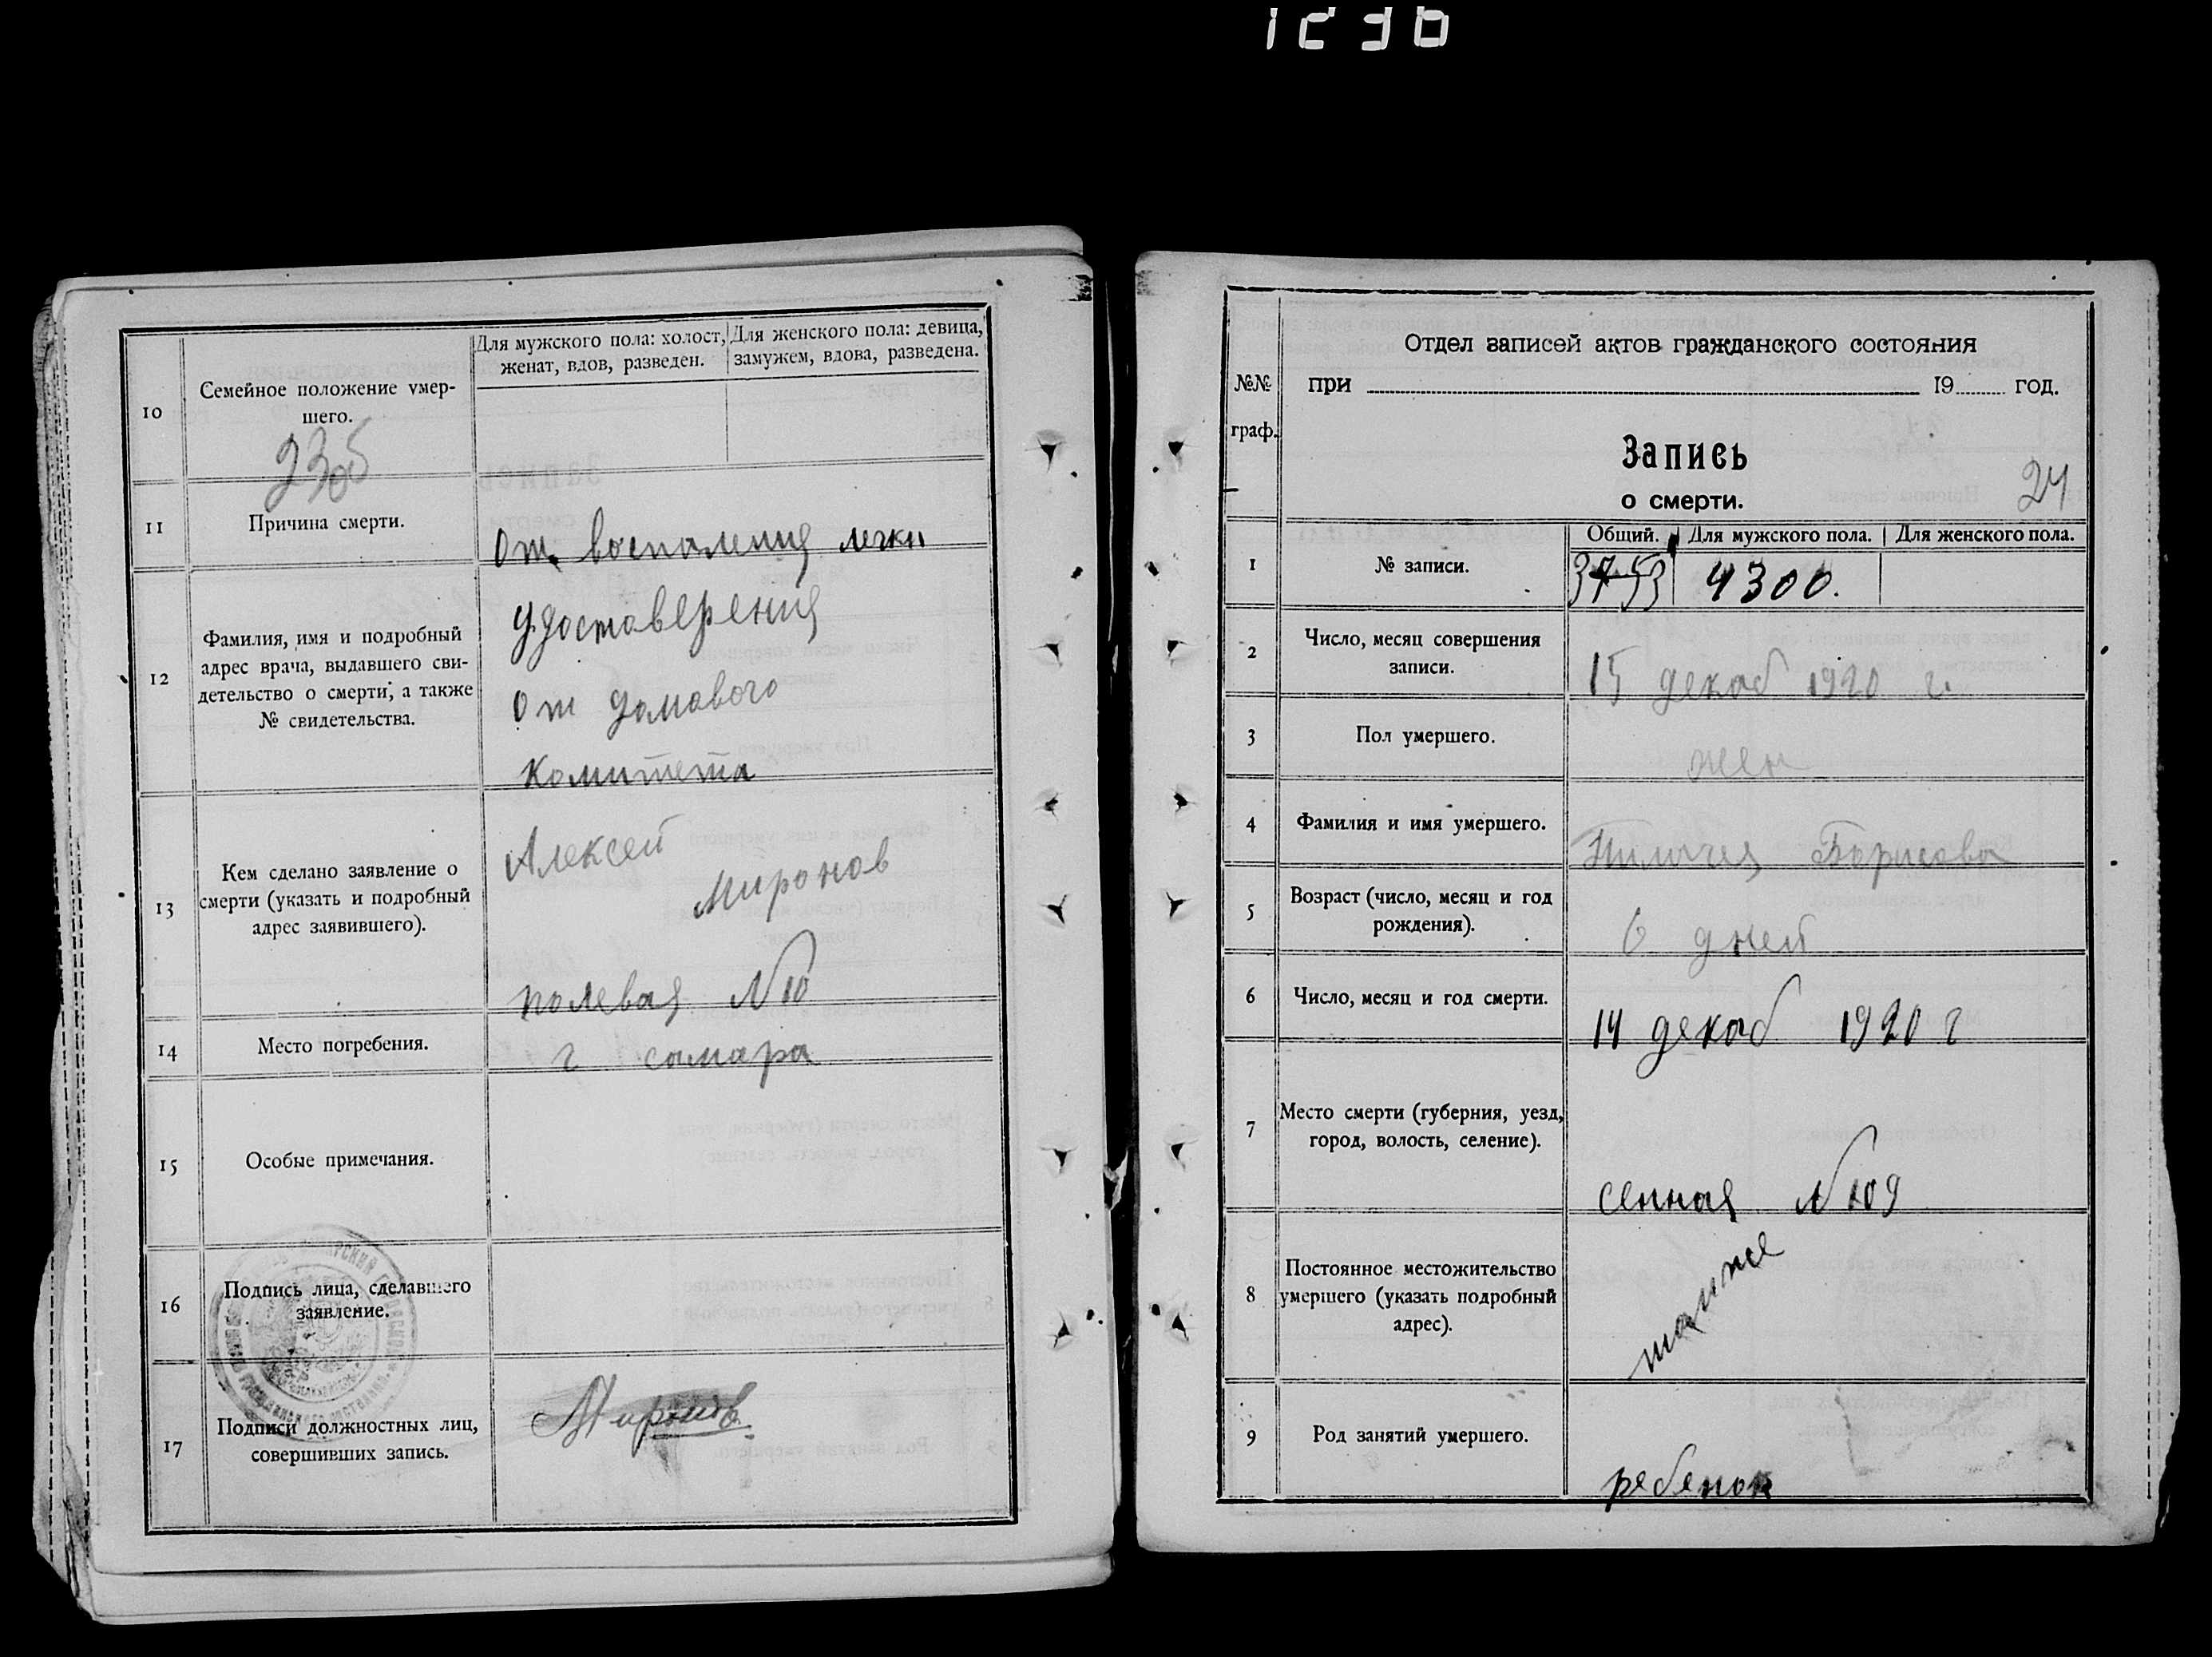 10
Семейное положение умер-
шего.
Для мужского пола: холост,
женат, вдов, разведен.
Для женского пола: девица,
замужем, вдова, разведена.
11
Причина смерти.
От воспаления легки
12
Фамилия, имя и подробный
адрес врача, выдавшего сви-
детельство о смерти, а также
№ свидетельства.
удостоверения
от домового
комитета
13
Кем сделано заявление о
смерти (указать и подробный
адрес заявившего).
Алексей
Миронов
полевая №10
14
Место погребения.
г самара
15
Особые примечания.
16
Подпись лица, сделавшего
заявление.
17
Подписи должностных лиц,
совершивших запись.
Миронов
№№
граф.
Отдел записей актов гражданского состояния
при 19 год.
Запись
о смерти.
24
Общий. Для мужского пола. Для женского пола.
1
№ записи.
3753 4300.
2
Число, месяц совершения
записи.
15 декаб 1920 г.
3
Пол умершего.
жен
4
Фамилия и имя умершего.
Борисова
5
Возраст (число, месяц и год
рождения).
6 дней
6
Число, месяц и год смерти.
14 декаб 1920 г
7
Место смерти (губерния, уезд,
город, волость, селение).
сенная №109
8
Постоянное местожительство
умершего (указать подробный
адрес).
тамже
9
Род занятий умершего.
ребенок